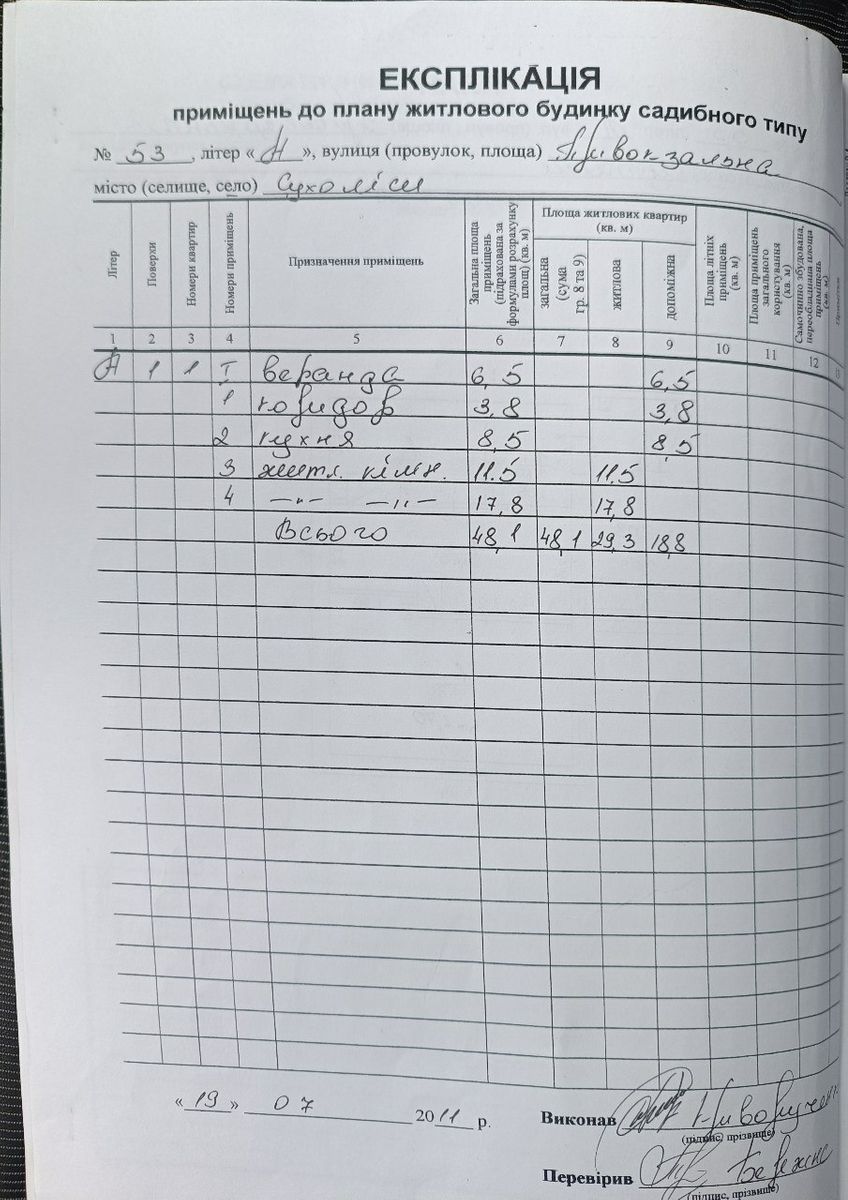 ЕКСПЛІКАЦІЯ
приміщень до плану житлового будинку садибного типу
№ 53, літер « А », вулиця (провулок, площа) Привокзальна
місто (селище, село) Сухоліси
Літер Поверхи Номери квартир Номери приміщень Призначення приміщень Загальна площа приміщень (підрахована за формулами розрахунку площ) (кв. м) Площа житлових квартир (кв. м) загальна (сума гр. 8 та 9) житлова допоміжна Площа літніх приміщень (кв. м) Площа приміщень загального користування (кв. м) Самочинно збудована, переобладнана площа приміщень (кв. м)
1 2 3 4 5 6 7 8 9 10 11 12
А 1 1 I веранда 6,5 6,5
1 коридор 3,8 3,8
2 кухня 8,5 8,5
3 житл. кімн. 11.5 11.5
4 —"— —"— 17,8 17,8
Всього 48,1 48,1 29,3 18,8
« 19 » 07 2011 р. Виконав
(підпис, прізвище)
Перевірив
(підпис, прізвище)